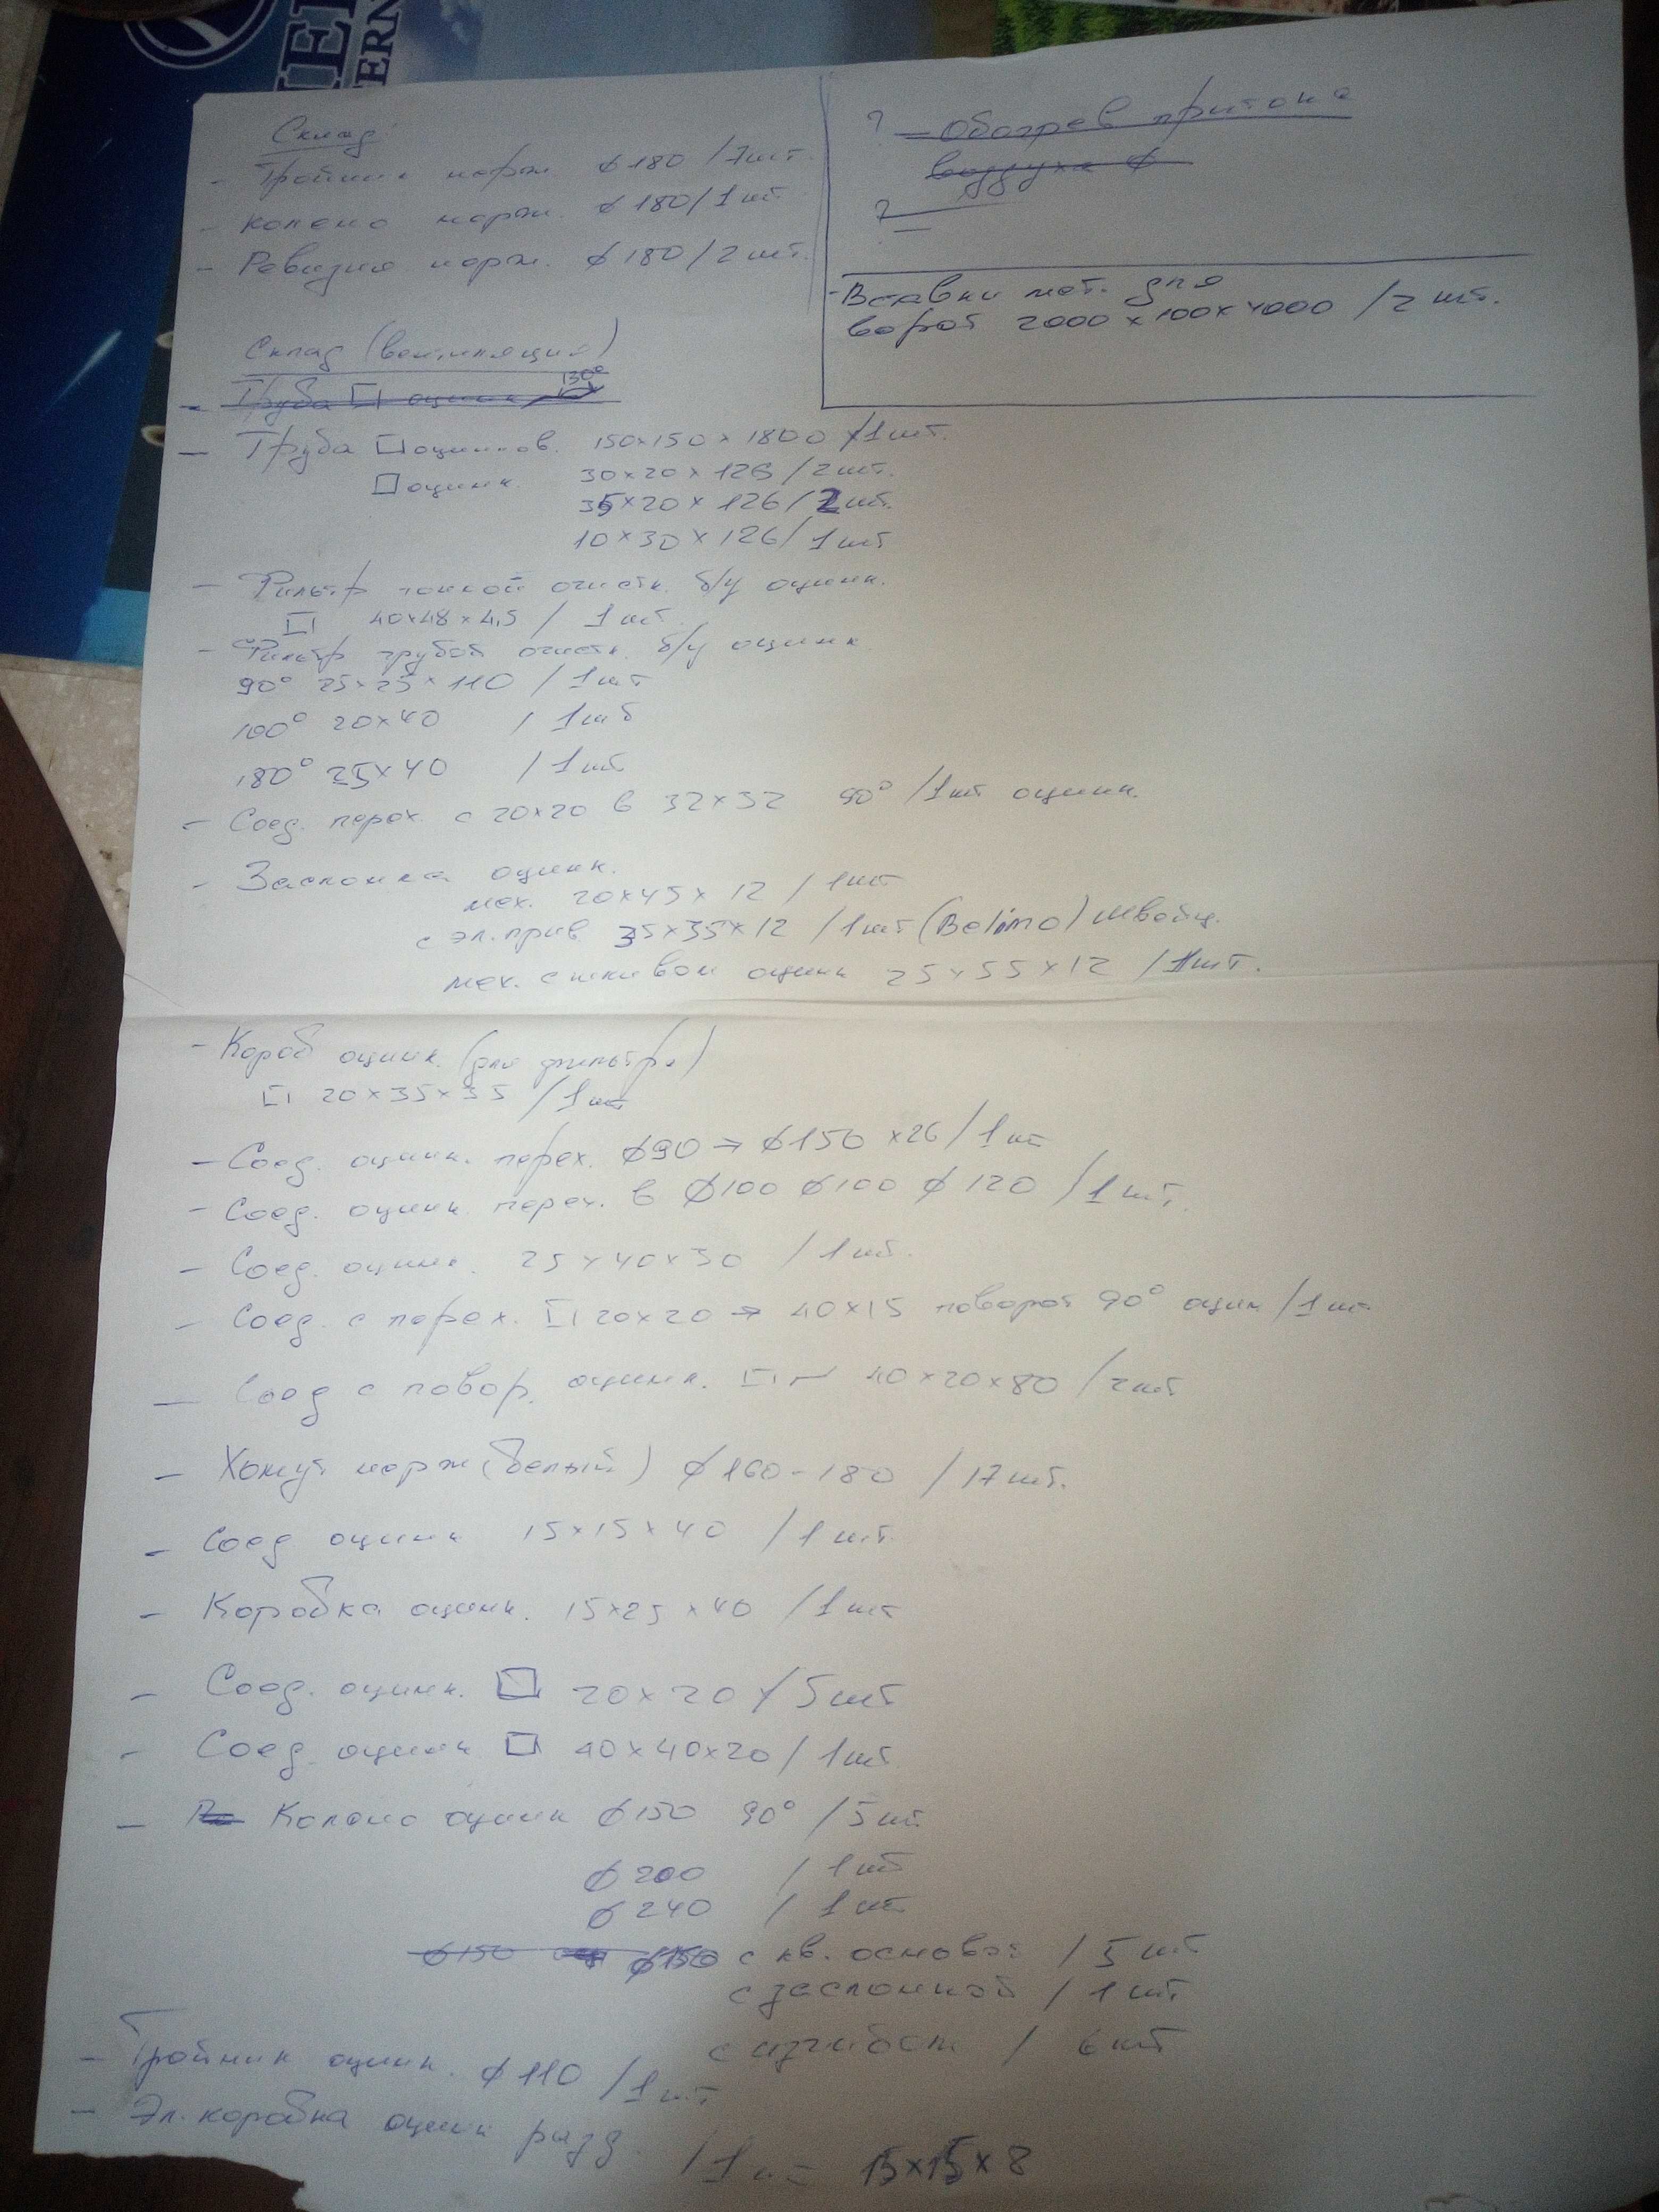 ERN
Склад
- Тройник нерж. ⌀180 /7шт.
- колено нерж. ⌀180/1шт
- Ревизия нерж. ⌀180/2шт.
? - Обогрев притока
воздуха ⌀
? -
- Вставки мет. для
ворот 2000 х 100х 4000 /2 шт.
Склад (вентиляция)
- Труба □ оцинк 130°
- Труба □оцинков. 150х150х1800 /1шт.
□оцинк. 30х20х126 /2шт.
35х20х126/2шт.
10х30х126/1шт
- Фильтр тонкой очистк. б/у оцинк.
□ 40х48х4,5 / 1шт.
- Фильтр грубой очистк. б/у оцинк
90° 25х25х110 / 1шт
100° 20х40 / 1шт
180° 25х40 / 1шт
- Соед. перех. с 20х20 в 32х32 90° /1шт оцинк.
- Заслонка оцинк.
мех. 20х45х12 / 1шт
с эл.прив 35х35х12 /1шт (Belimo) швейц.
мех. с шкивом оцинк 25х55х12 /1шт.
- Короб оцинк. (для фильтра)
□ 20х35х35 /1шт
- Соед. оцинк. перех. ⌀90 → ⌀150 х26/1шт
- Соед. оцинк. перех. в ⌀100 ⌀100 ⌀120 /1шт.
- Соед. оцинк. 25х40х30 /1шт.
- Соед. с перех. □20х20 → 40х15 поворот 90° оцин/1шт.
- Соед с повор. оцинк. □ 40х20х80 /2шт
- Хомут нерж (белый) ⌀160-180 /17шт.
- Соед оцинк 15х15х40 /1шт.
- Коробка оцинк. 15х25х40 /1шт
- Соед. оцинк. □ 20х20 /5шт
- Соед. оцинк □ 40х40х20/1шт
- Колено оцинк ⌀150 90° /5шт
⌀200 / 1шт
⌀240 / 1шт
⌀150 ⌀150 с кв. основой /5шт
с заслонкой /1шт
с изгибом / 6шт
- Тройник оцинк. ⌀110 /1шт
- Эл. коробка оцинк разд. /1шт 15х15х8